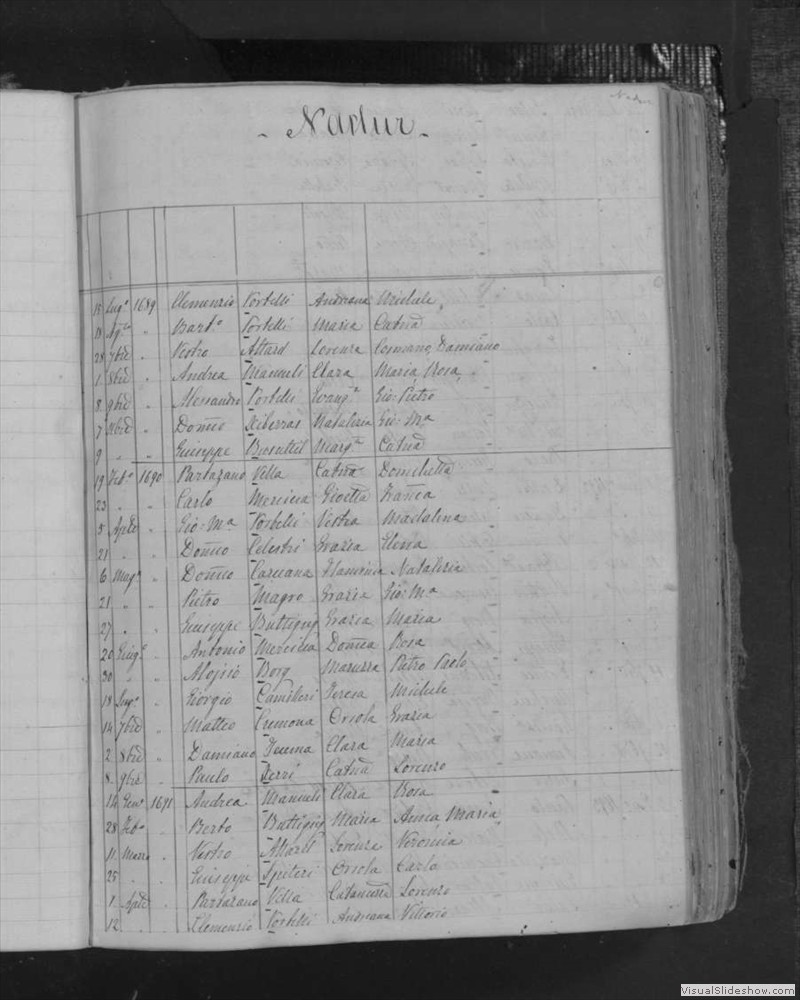 Nadur
- Nadur -
15 Lugo 1689 Clemenzio Portelli Andreana Michele
18 Agto " Barto Portelli Maria Catna
28 7bre " Nestro Attard Lorenza Cosmano Damiano
1 8bre " Andrea Mamuli Clara Maria Rosa
8 9bre " Alessandro Portelli Evanga Gio: Pietro
7 Xbre " Domco Xiberras Natalizia Gio: Ma
9 " " Giuseppe Busuttil Marga Catna
19 Febo 1690 Partazano Vella Catna Domitilla
23 " " Carlo Mercieca Gioetta Franca
5 Aple " Gio: Ma Portelli Vestra Madalena
21 " " Domco Celestri Grazia Elena
6 Mago " Domco Caruana Flaminia Natalizia
21 " " Pietro Magro Grazia Gio: Ma
27 " " Giuseppe Buttigieg Grazia Maria
20 Giugo " Antonio Mercieca Domca Rosa
30 " " Aloisio Borg Maruzza Pietro Paolo
18 Lugo " Giorgio Camilleri Teresa Michele
14 7bre " Matteo Cremona Orsola Grazia
2 8bre " Damiano Tewma Clara Maria
8 9bre " Paulo Xerri Catna Lorenzo
14 Geno 1691 Andrea Mamuli Clara Rosa
28 Febo " Berto Buttigieg Maria Anna Maria
11 Marzo " Nestro Attard Lorenza Veronica
25 " " Giuseppe Spiteri Orsola Carlo
1 Aple " Partazano Vella Catarina Lorenzo
12 Clemenzio Portelli Andreana Vittorio
VisualSlideshow.com